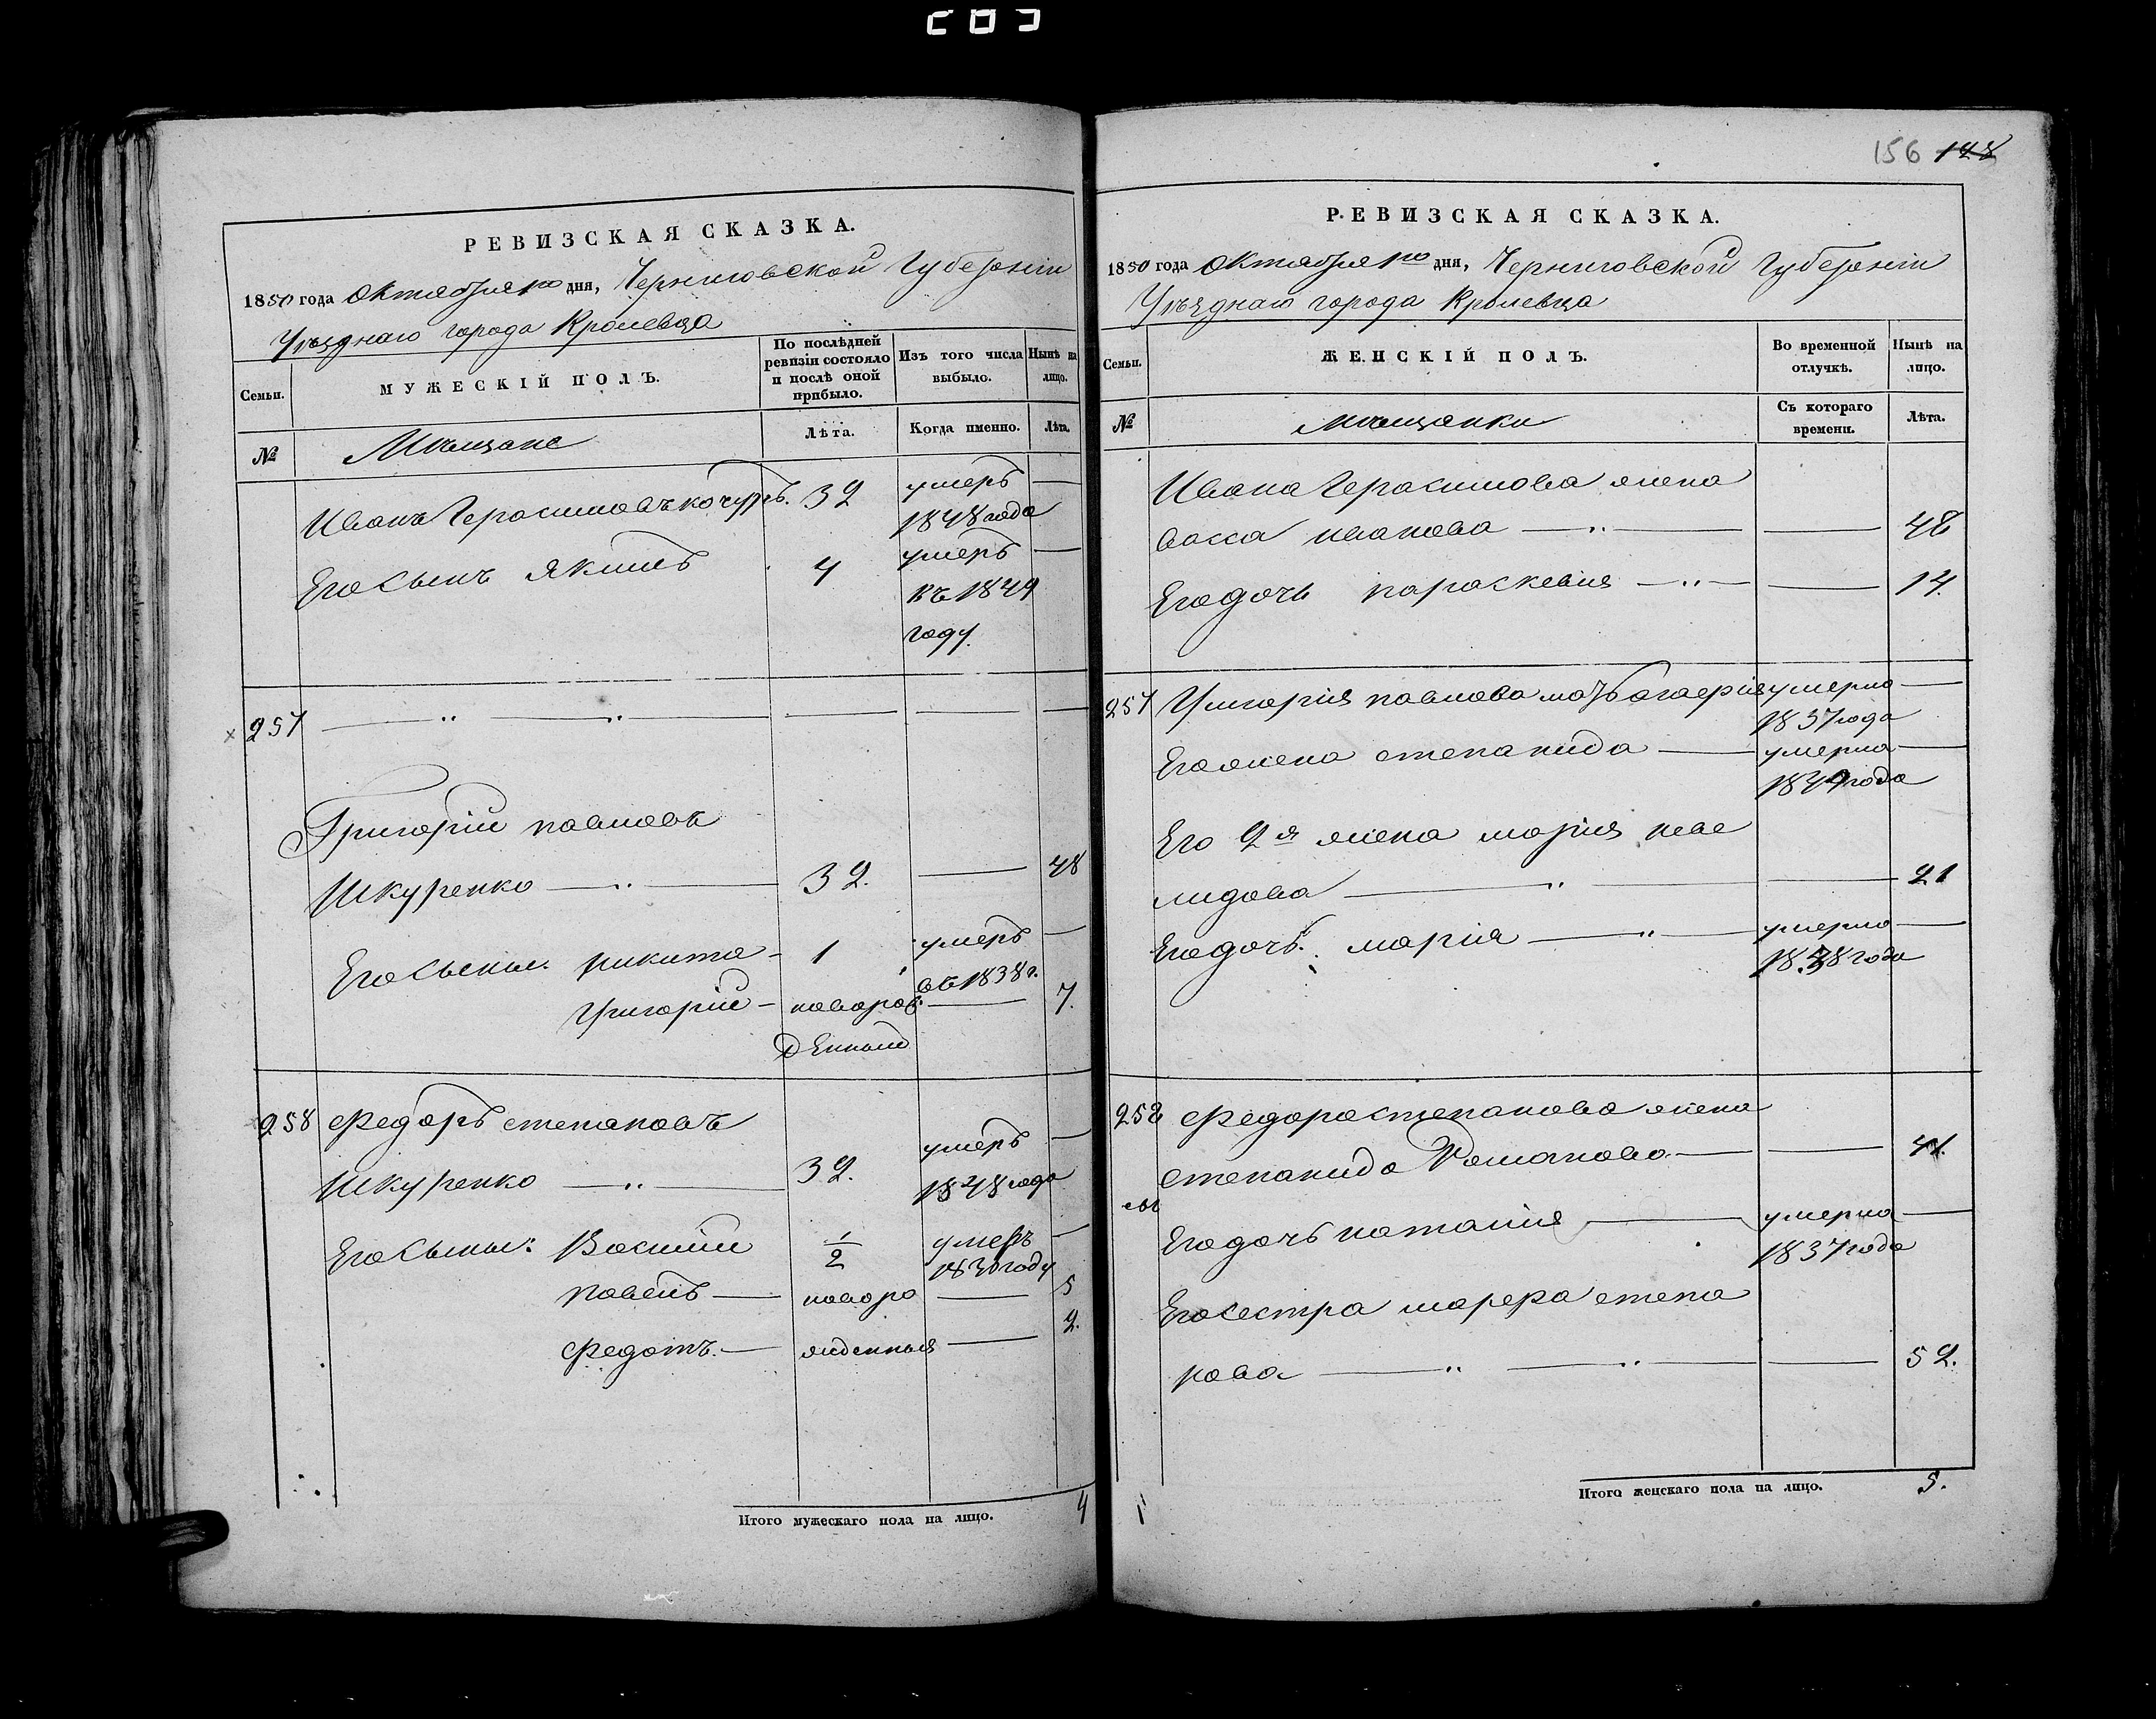 203
РЕВИЗСКАЯ СКАЗКА.
1850 года октября 1го дня, Черниговской Губернiи
Уѣзднаго города Кролевца
Семьи.
МУЖЕСКІЙ ПОЛЪ.
По послѣдней ревизіи состояло и послѣ оной прибыло.
Изъ того числа выбыло.
Нынѣ на лицо.
№
Мѣщане
Лѣта.
Когда именно.
Лѣта.
Иванъ Герасимовъ 32 умеръ —
1848 года
Его Сынъ Якимъ 4 умеръ —
въ 1849
году.
257 — „ — „ — — — —
Григорiй павловъ
Шкуренко — „ — 32. — 48
Его Сыны: никита — 1 умеръ —
въ 1838 г.
Григорiй — новорож — 7.
денный
258 Федоръ степановъ
Шкуренко — „ — 32. умеръ —
1848 года
Его Сыны: Василiй 1/2 умеръ —
году
павелъ — новоро — 5
федотъ. — жденныя — 2.
Итого мужескаго пола на лицо. 4
156 148
РЕВИЗСКАЯ СКАЗКА.
1850 года октября 1го дня, Черниговской Губернiи
Уѣзднаго города Кролевца
Семьи.
ЖЕНСКІЙ ПОЛЪ.
Во временной отлучкѣ.
Нынѣ на лицо.
№
мѣщанки
Съ котораго времени.
Лѣта.
Ивана Герасимова жена
васса иванова — „ — — 48
Его дочь параскевiя — „ — — 14.
257 Григорiя павлова мать агафiя умерла —
1837 года
Его жена степанида — умерла —
года
Его 2я жена марiя
лидова — „ — — 21
Его дочь: марiя — „ — умерла —
1838 года
258 Федора степанова жена
степанида Романова — — 41.
Его дочь наталiя — умерла —
1837 года
Его Сестра марфа степа
нова — „ — „ — — 52.
Итого женскаго пола на лицо. 5.